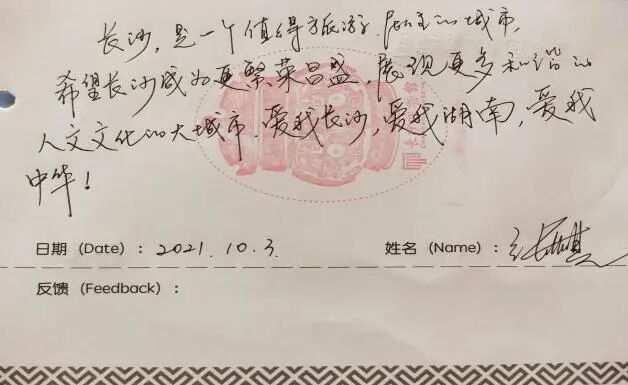 长沙，是一个值得旅游、居住的城市，
希望长沙成为更繁荣昌盛，展现更多和谐的
人文文化的大城市．爱我长沙，爱我湖南，爱我
中华！
日期（Date）：2021.10.3.
姓名（Name）：
反馈（Feedback）：